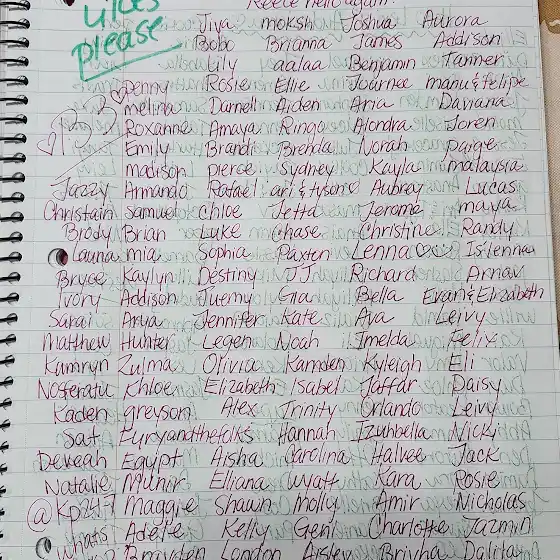 Likes
please
Reece hello again!
Jiya moksh Joshua Aurora
Bobo Brianna James Addison
Lily aalaa Benjamin Tanner
Penny Rosie Ellie Journee manu & felipe
melina Darnell Aiden Aria Daviana
Roxanne Amaya Ringo Alondra Joren
Emily Brandi Brenda Norah paige
madison pierce Sydney Kayla malaysia
Jazzy Armando Rafael ari & tyson Aubrey Lucas
Christain Samuel Chloe Jetta Jerome maya
Brody Brian Luke Chase Christine Randy
Launa mia Sophia Paxton Lenna Islenna
Bryce Kaylyn Destiny JJ Richard Arnav
Ivory Addison Juemy Gia Bella Evan & Elizabeth
Sarai Arya Jennifer Kate Ava Leivy
Matthew Hunter Legen Noah Imelda Felix
Kamryn Zulma Olivia Kamden Kyleigh Eli
Nosferatu Khloe Elizabeth Isabel Jaffar Daisy
Kaden greyson Alex Trinity Orlando Leivy
Sat Furyandthefolks Hannah Izuhbella Nicky
Deveah Egypt Aisha Carolina Halvee Jack
Natalie Munir Eliana Wyatt Kara Rosie
@Kp24-7 Maggie Shawn Molly Amir Nicholas
whats Adele Kelly Geni Charlotte Jazmin
Brayden London Aisley